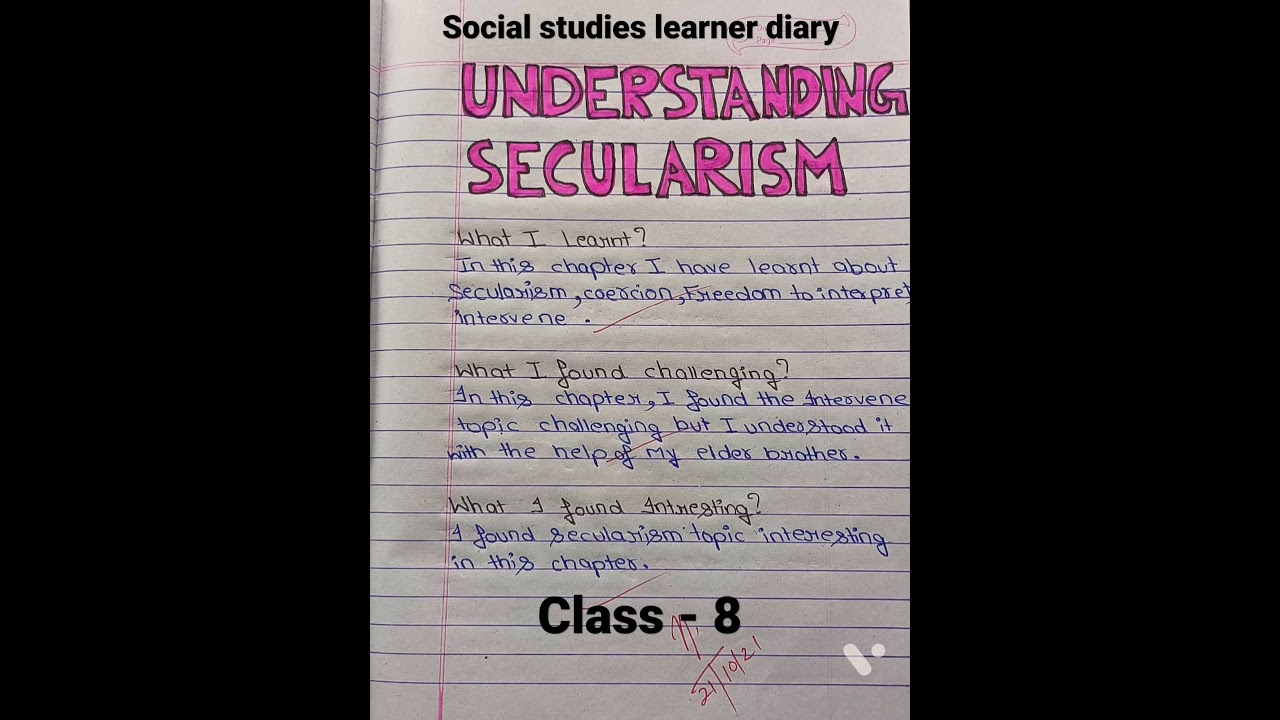 Social studies learner diary
UNDERSTANDING
SECULARISM
What I Learnt?
In this chapter I have learnt about
secularism, coercion, Freedom to interpret,
intervene .
What I found challenging?
In this chapter, I found the Intervene
topic challenging but I understood it
with the help of My elder brother.
What I found Intresting?
I found secularism topic interesting
in this chapter.
Class - 8
21/10/21